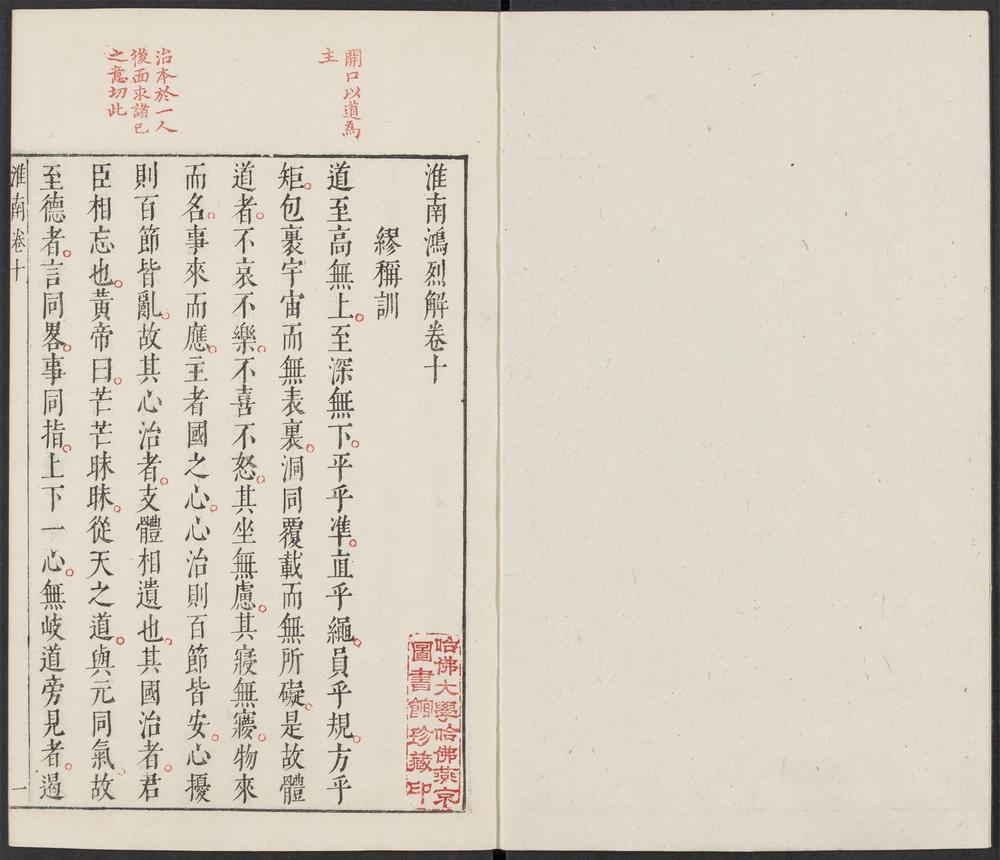 開口以道為
主
治本於一人
後面求諸己
之意切此
淮南鴻烈解卷十
繆稱訓
道至高無上至深無下平乎準直乎繩員乎規方乎
矩包裹宇宙而無表裏洞同覆載而無所礙是故體
道者不哀不樂不喜不怒其坐無慮其寢無夢物來
而名事來而應主者國之心心治則百節皆安心擾
則百節皆亂故其心治者支體相遺也其國治者君
臣相忘也黃帝曰芒芒昧昧從天之道與元同氣故
至德者言同畧事同指上下一心無岐道旁見者遏
淮南卷十
一
哈佛大學哈佛燕京
圖書館珍藏印